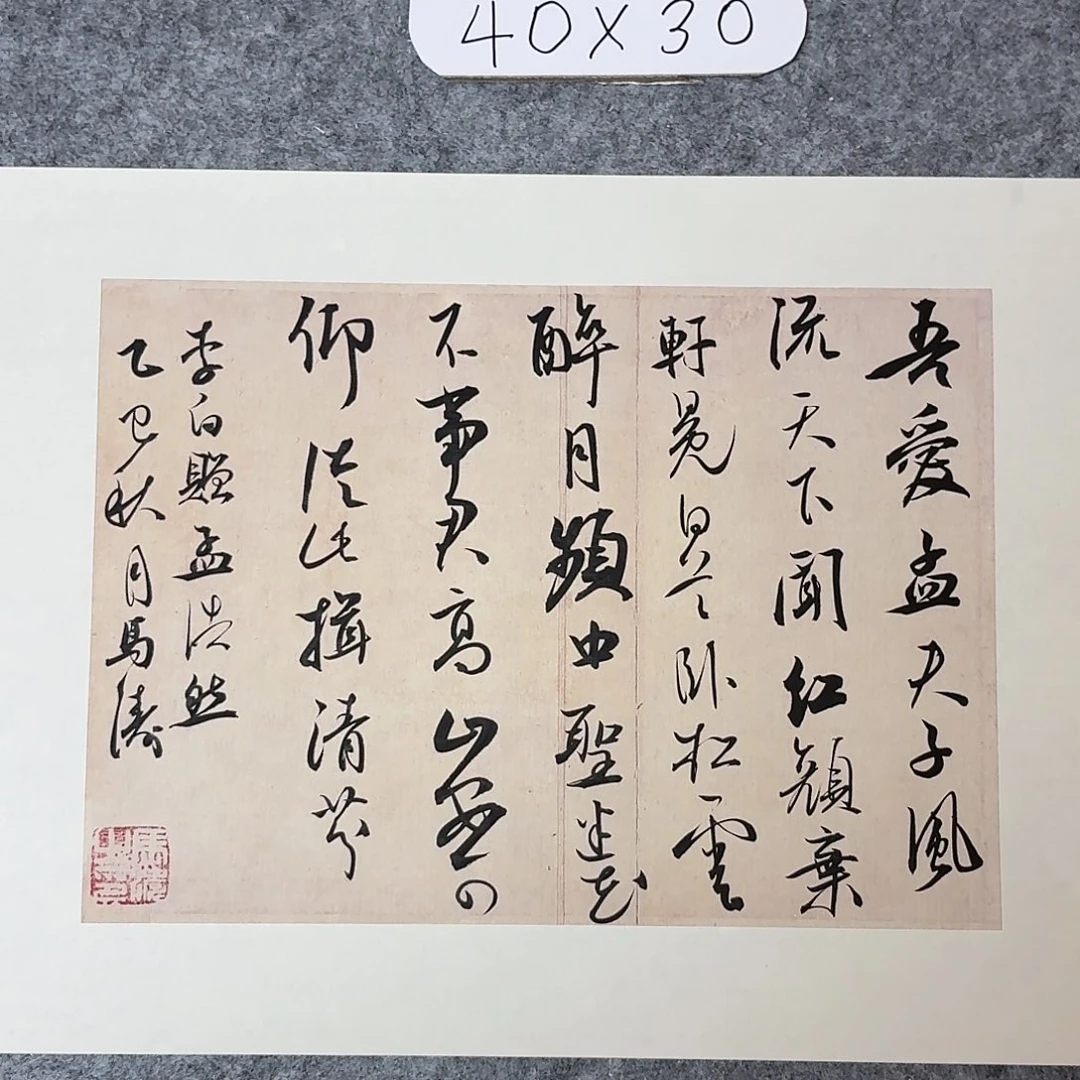 40X30
吾愛孟夫子風
流天下聞紅顏棄
軒冕白首臥松雲
醉月頻中聖迷花
不事君高山安可
仰徒此揖清芬
李白贈孟浩然
乙巳秋月馬濤